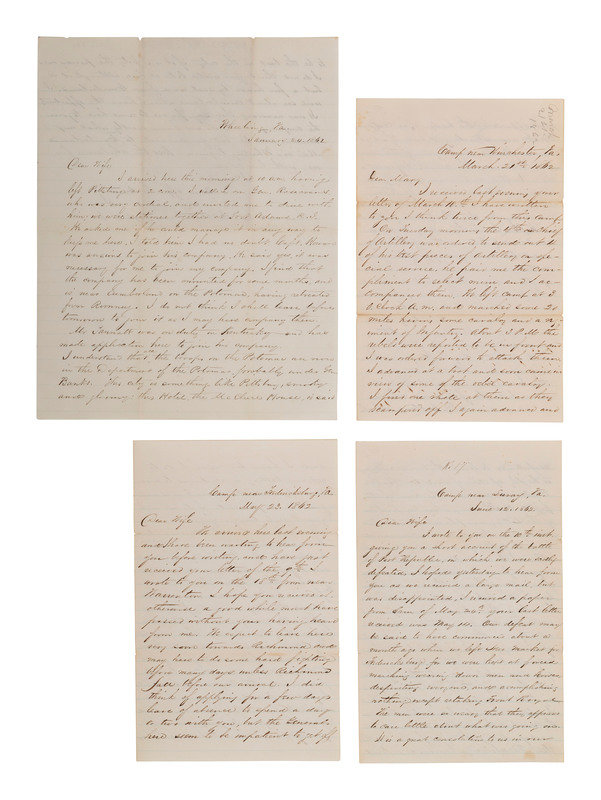 Wheeling, Va.
January 24. 1862
Dear Wife
I arrived here this morning at 10 am having
left Pittsburg at 2 a.m. I called on Gen. Rosecrans
who was very cordial and invited me to dine with
him, we were stationed together at Fort Adams R.I.
He asked me if he could manage it in any way to
keep me here, I told him I had no doubt
was anxious to join his company. He said yes it was
necessary for me to join my company. I find that
the company has been mounted for some months, and
is near Cumberland on the Potomac, having retreated
from Romney. I do not think I will leave before
tomorrow to join it as I must have company there.
Mr. was on duty in Kentucky and has
made application here to join his company
I understand that the troops on the Potomac are now
in the Department of the Potomac probably under Gen
Banks. This city is something like Pittsburg, smoky
and gloomy; this Hotel, the McClure House, is said
Camp near Winchester, Va.
March. 21st 1862
Dear Mary,
I received last evening your
letter of March 14th I have written
to you I think twice from this camp
On Tuesday morning the 4th Artillery
of Artillery was ordered to send out
of his best pieces of artillery on spe-
cial service, he paid me the com-
pliment to select mine and I ac-
companied them. We left camp at 3
o'clock a.m. and marched some 21
miles, having some cavalry and a reg-
iment of Infantry. About 3 P.M. the
rebels were reported to be in front and
I was ordered forward to attack them
I advanced at a trot and soon came in
view of some of the rebel cavalry.
I fired one shell at them as they
scampered off. I again advanced and
Camp near Fredericksburg, Va.
May 23. 1862
Dear Wife
We arrived here last evening
and I have been waiting to hear from
you before writing, and have just
received your letter of the 9th. I
wrote to you on the 15th from near
Warrenton I hope you received it
otherwise a good while must have
passed without your having heard
from me. We expect to leave here
very soon towards Richmond and
may have to do some hard fighting
before many days unless Richmond
falls before our arrival. I did
think of applying for a few days
leave of absence to spend a day
or two with you, but the Generals
here seem to be impatient to get off
No. 17
Camp near Luray, Va.
June 12. 1862.
Dear Wife
I wrote to you on the 10th inst.
giving you a short account of the battle
of Port Republic, in which we were sadly
defeated. I hoped yesterday to hear from
you as we received a large mail, but
was disappointed. I received a paper
from Sam of May 24th your last letter
received was May 10. Our defeat may
be said to have commenced about a
month ago when we left New Market for
Fredericksburg for we have lived at forced
marching wearing down men and horses
despoiling wagons and accomplishing
nothing except
The men were so weary that they appeared
to care little about what was going on.
It is a great consolation to us in our